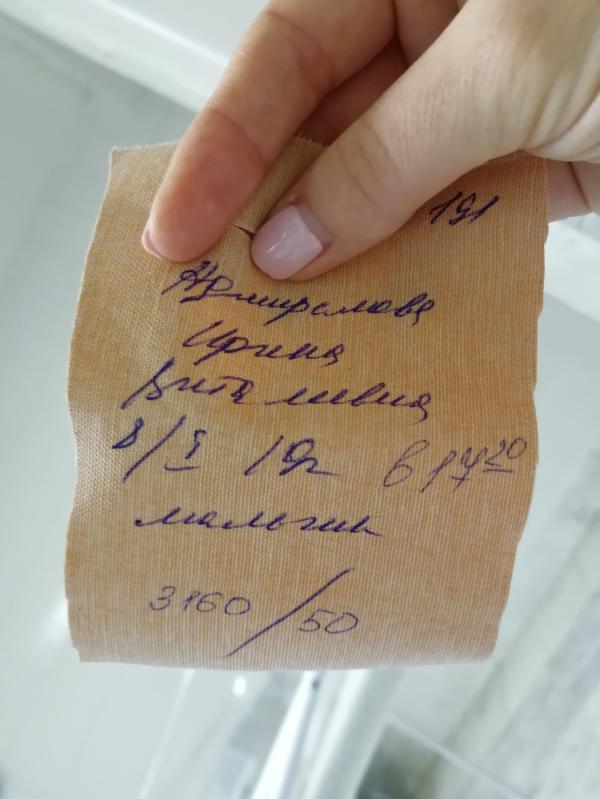 191
Адмиралова
Ирина
8/I 19г в 17 20
мальчик
3160/50